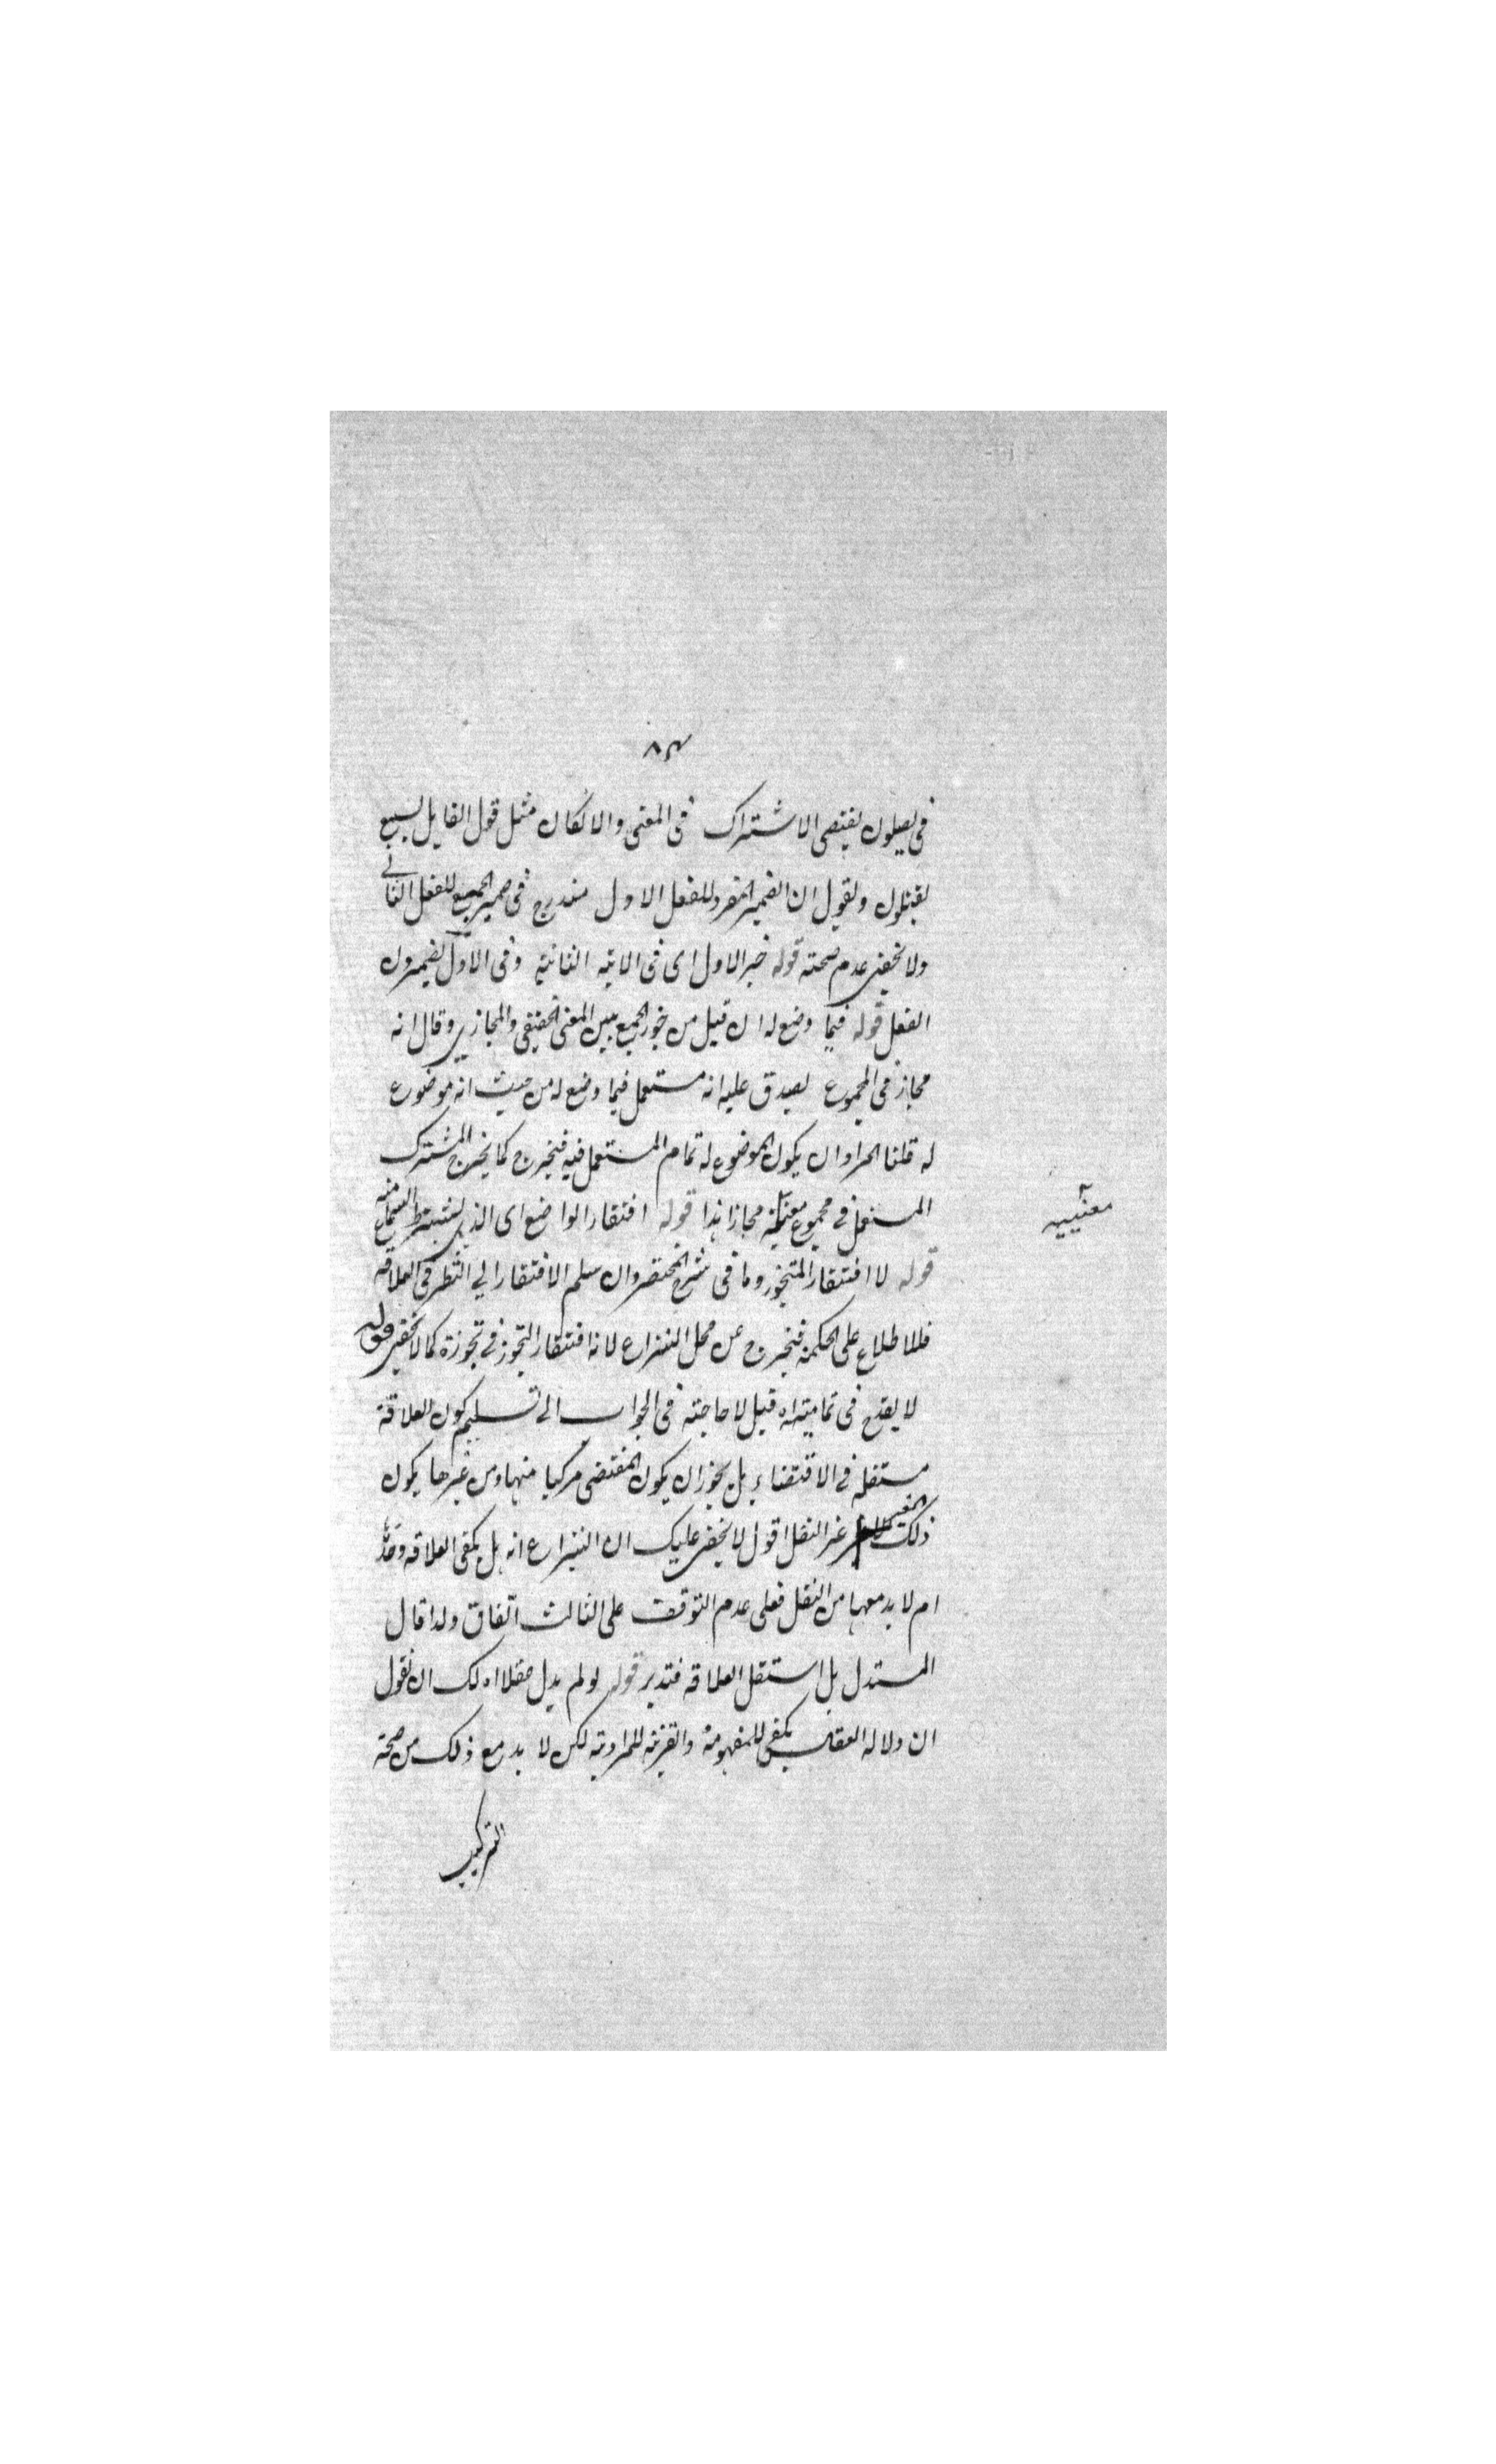 ٨٣
فى يصلون يقتضى الاشتراك فى المعنى والا لكان مثل قول القايل
يقبلون ونقول ان الضمير المفرد للفعل الاول مندرج فى ضمير الجمع للفعل الثانى
ولا يخفى عدم صحته قوله خبر الاول اى فى الاية الثانية وفى الاول يضمرون
الفعل قوله فيما وضع له ان قيل من جوز الجمع بين المعنى الحقيقى والمجازى وقال انه
مجاز فى المجموع يصدق عليه انه مستعمل فيما وضع له من حيث انه موضوع
له قلنا المراد ان يكون الموضوع له تمام المستعمل فيه فيخرج كما يخرج المشترك
المستعمل فى مجموع معنييه مجازا هذا قوله افتقار الواضع اى الذى يشترط السماع منه
معنييه
قوله لا افتقار المتجوز وما فى شرح المختصر وان سلم الافتقار الى النظر فى العلاقة
فللاطلاع على الحكمة فيخرج عن محل النزاع لانه افتقار التجوز فى تجوزه كما لا يخفى قوله
لا يقدح فى تماميته اه قيل لا حاجته فى الجواب الى تسليم كون العلاقة
مستقلة فى الاقتضاء بل يجوز ان يكون المقتضى مركبا منها ومن غيرها يكون
ذلك الغير غير النقل اقول لا يخفى عليك ان النزاع انه هل يكفى العلاقة وحدها
ام لا بد معها من النقل فعلى عدم التوقف على الثالث اتفاق ولذا قال
المستدل بل استقل العلاقة فتدبر قوله لو لم يدل عقلا اه لك ان نقول
ان دلالة العقل يكفى للمفهومية والقرينة للمرادية لكن لا بد مع ذلك من صحة
التركيب